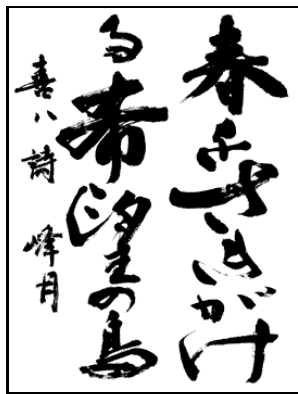 春をさきがけ
る希望の鳥
喜八詩 峰月